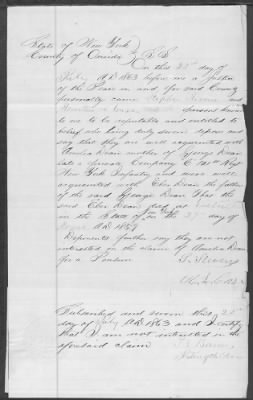 State of New York
County of Oneida } S.S.
On this 22 day of
July A.D. 1863 before me a Justice
of the Peace in and for said County
personally came and
persons known
to me to be reputable and entitled to
belief who being duly sworn depose and
say that they are well acquainted with
Amelia Dean mother of George Dean
late a private Company C Regt
New York Infantry and were well
acquainted with Eber Dean the father
of the said George Dean that the
said Eber Dean died at
in the State of on the 27 day of
A.D. 1859
Deponents further say they are not
interested in the claim of Amelia Dean
for a Pension
Subscribed and sworn this 22
day of July A.D. 1863 and I certify
that I am not interested in the
aforesaid claim